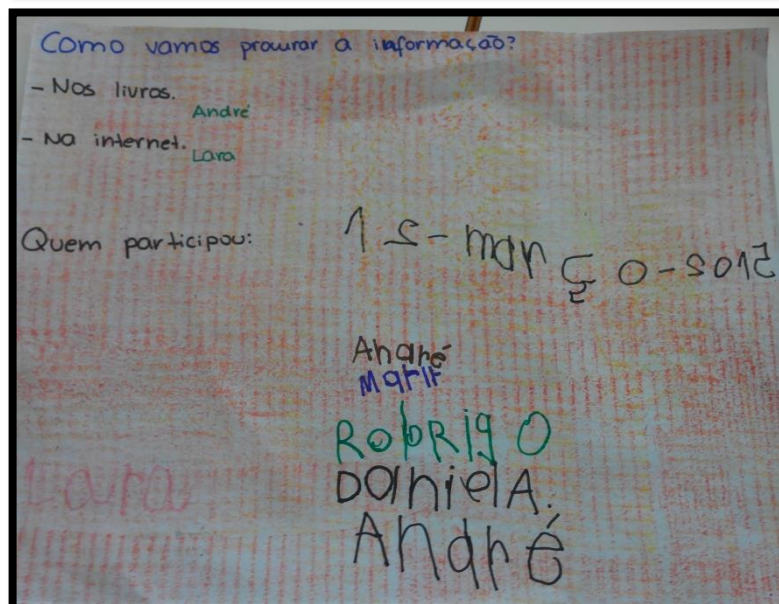 Como vamos procurar a informação?
- Nos livros.
André
- Na internet.
Lara
Quem participou:
12-março-2015
André
Robrigo
DanielA.
Lara
André